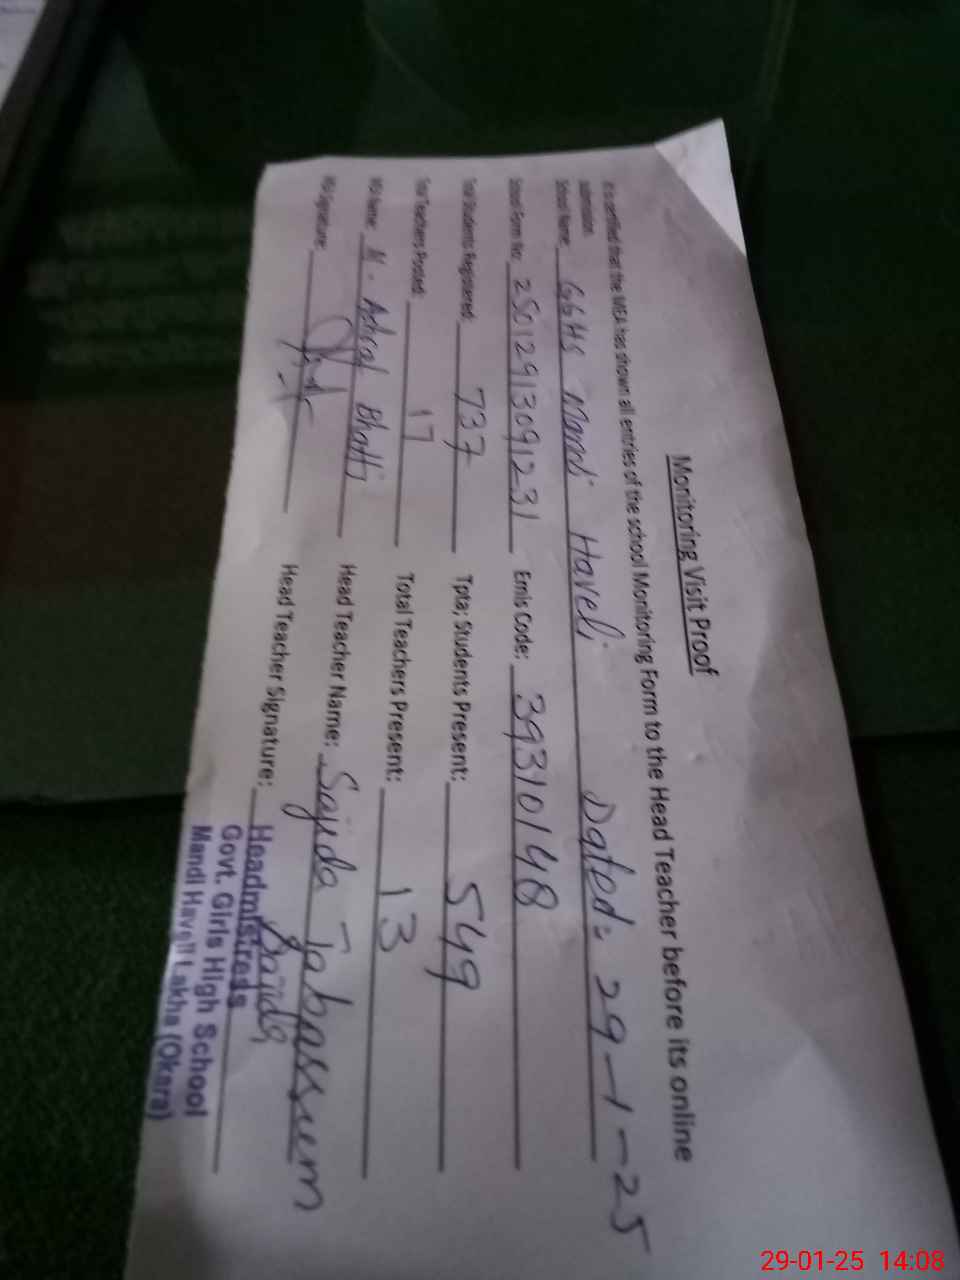 Monitoring Visit Proof
It is certified that the MEA has shown all entries of the school Monitoring Form to the Head Teacher before its online
submission
School Name: GGHS Mandi Haveli Dated: 29-1-25
School Form No: 25012913091231 Emis Code: 39310148
Total Students Registered: 737 Tpta; Students Present: 549
Total Teachers Posted: 17 Total Teachers Present: 13
Name: M. Ashraf Bhatti Head Teacher Name: Sajida Tabassum
Signature: Head Teacher Signature: Sajida
Headmistress
Govt. Girls High School
Mandi Haveli Lakha (Okara)
29-01-25 14:08